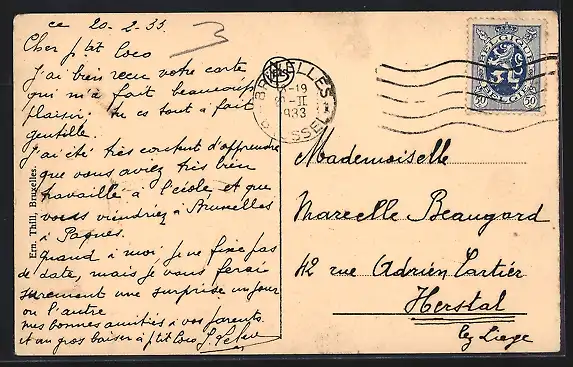 ce 20-2-33
3
Cher p'tit Coco
J'ai bien recu votre carte
qui m'a fait beaucoup
plaisir, tu es tout à fait
gentille.
J'ai été très content d'apprendre
que vous aviez très bien
travaillé à l'école et que
vous viendriez à Bruxelles
à Paques.
Quand à moi, je ne fixe pas
de date, mais je vous ferai
surement une surprise un jour
ou l'autre
mes bonnes amitiés à vos parents.
et un gros baiser à p'tit Coco
Ern. Thill, Bruxelles.
BRUXELLES
-19
-II
1933
BRUSSEL
BELGIQUE
BELGIE
50 50
Mademoiselle
Marcelle Beaugard
42 rue Adrien Cartier
Herstal
lez Liege